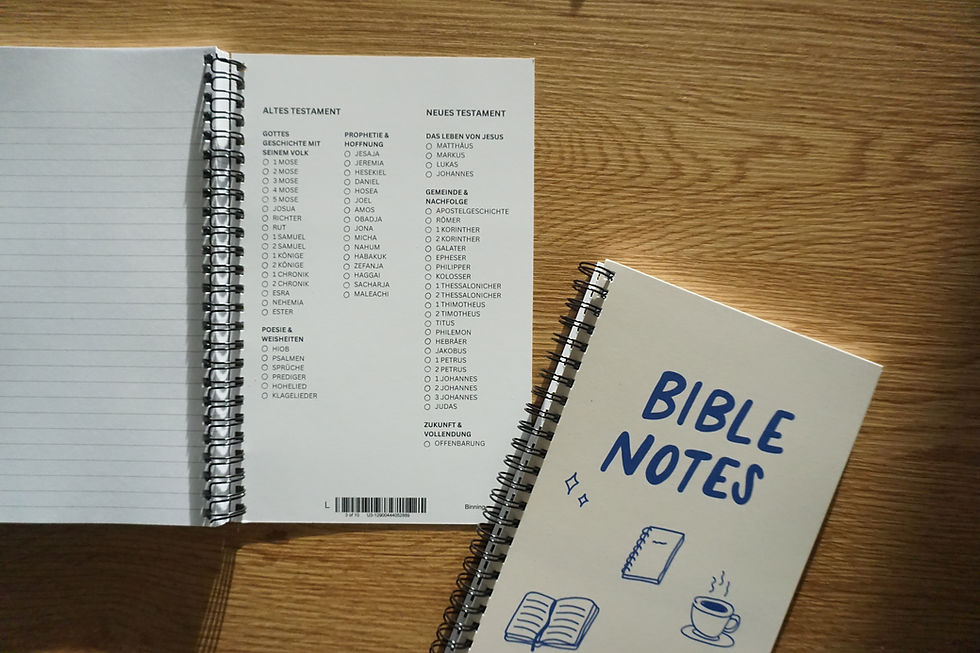 ALTES TESTAMENT
GOTTES
GESCHICHTE MIT
SEINEM VOLK
1 MOSE
2 MOSE
3 MOSE
4 MOSE
5 MOSE
JOSUA
RICHTER
RUT
1 SAMUEL
2 SAMUEL
1 KÖNIGE
2 KÖNIGE
1 CHRONIK
2 CHRONIK
ESRA
NEHEMIA
ESTER
POESIE &
WEISHEITEN
HIOB
PSALMEN
SPRÜCHE
PREDIGER
HOHELIED
KLAGELIEDER
PROPHETIE &
HOFFNUNG
JESAJA
JEREMIA
HESEKIEL
DANIEL
HOSEA
JOEL
AMOS
OBADJA
JONA
MICHA
NAHUM
HABAKUK
ZEFANJA
HAGGAI
SACHARJA
MALEACHI
NEUES TESTAMENT
DAS LEBEN VON JESUS
MATTHÄUS
MARKUS
LUKAS
JOHANNES
GEMEINDE &
NACHFOLGE
APOSTELGESCHICHTE
RÖMER
1 KORINTHER
2 KORINTHER
GALATER
EPHESER
PHILIPPER
KOLOSSER
1 THESSALONICHER
2 THESSALONICHER
1 THIMOTHEUS
2 TIMOTHEUS
TITUS
PHILEMON
HEBRÄER
JAKOBUS
1 PETRUS
2 PETRUS
1 JOHANNES
2 JOHANNES
3 JOHANNES
JUDAS
ZUKUNFT &
VOLLENDUNG
OFFENBARUNG
L
3 of 10
Binning
BIBLE
NOTES